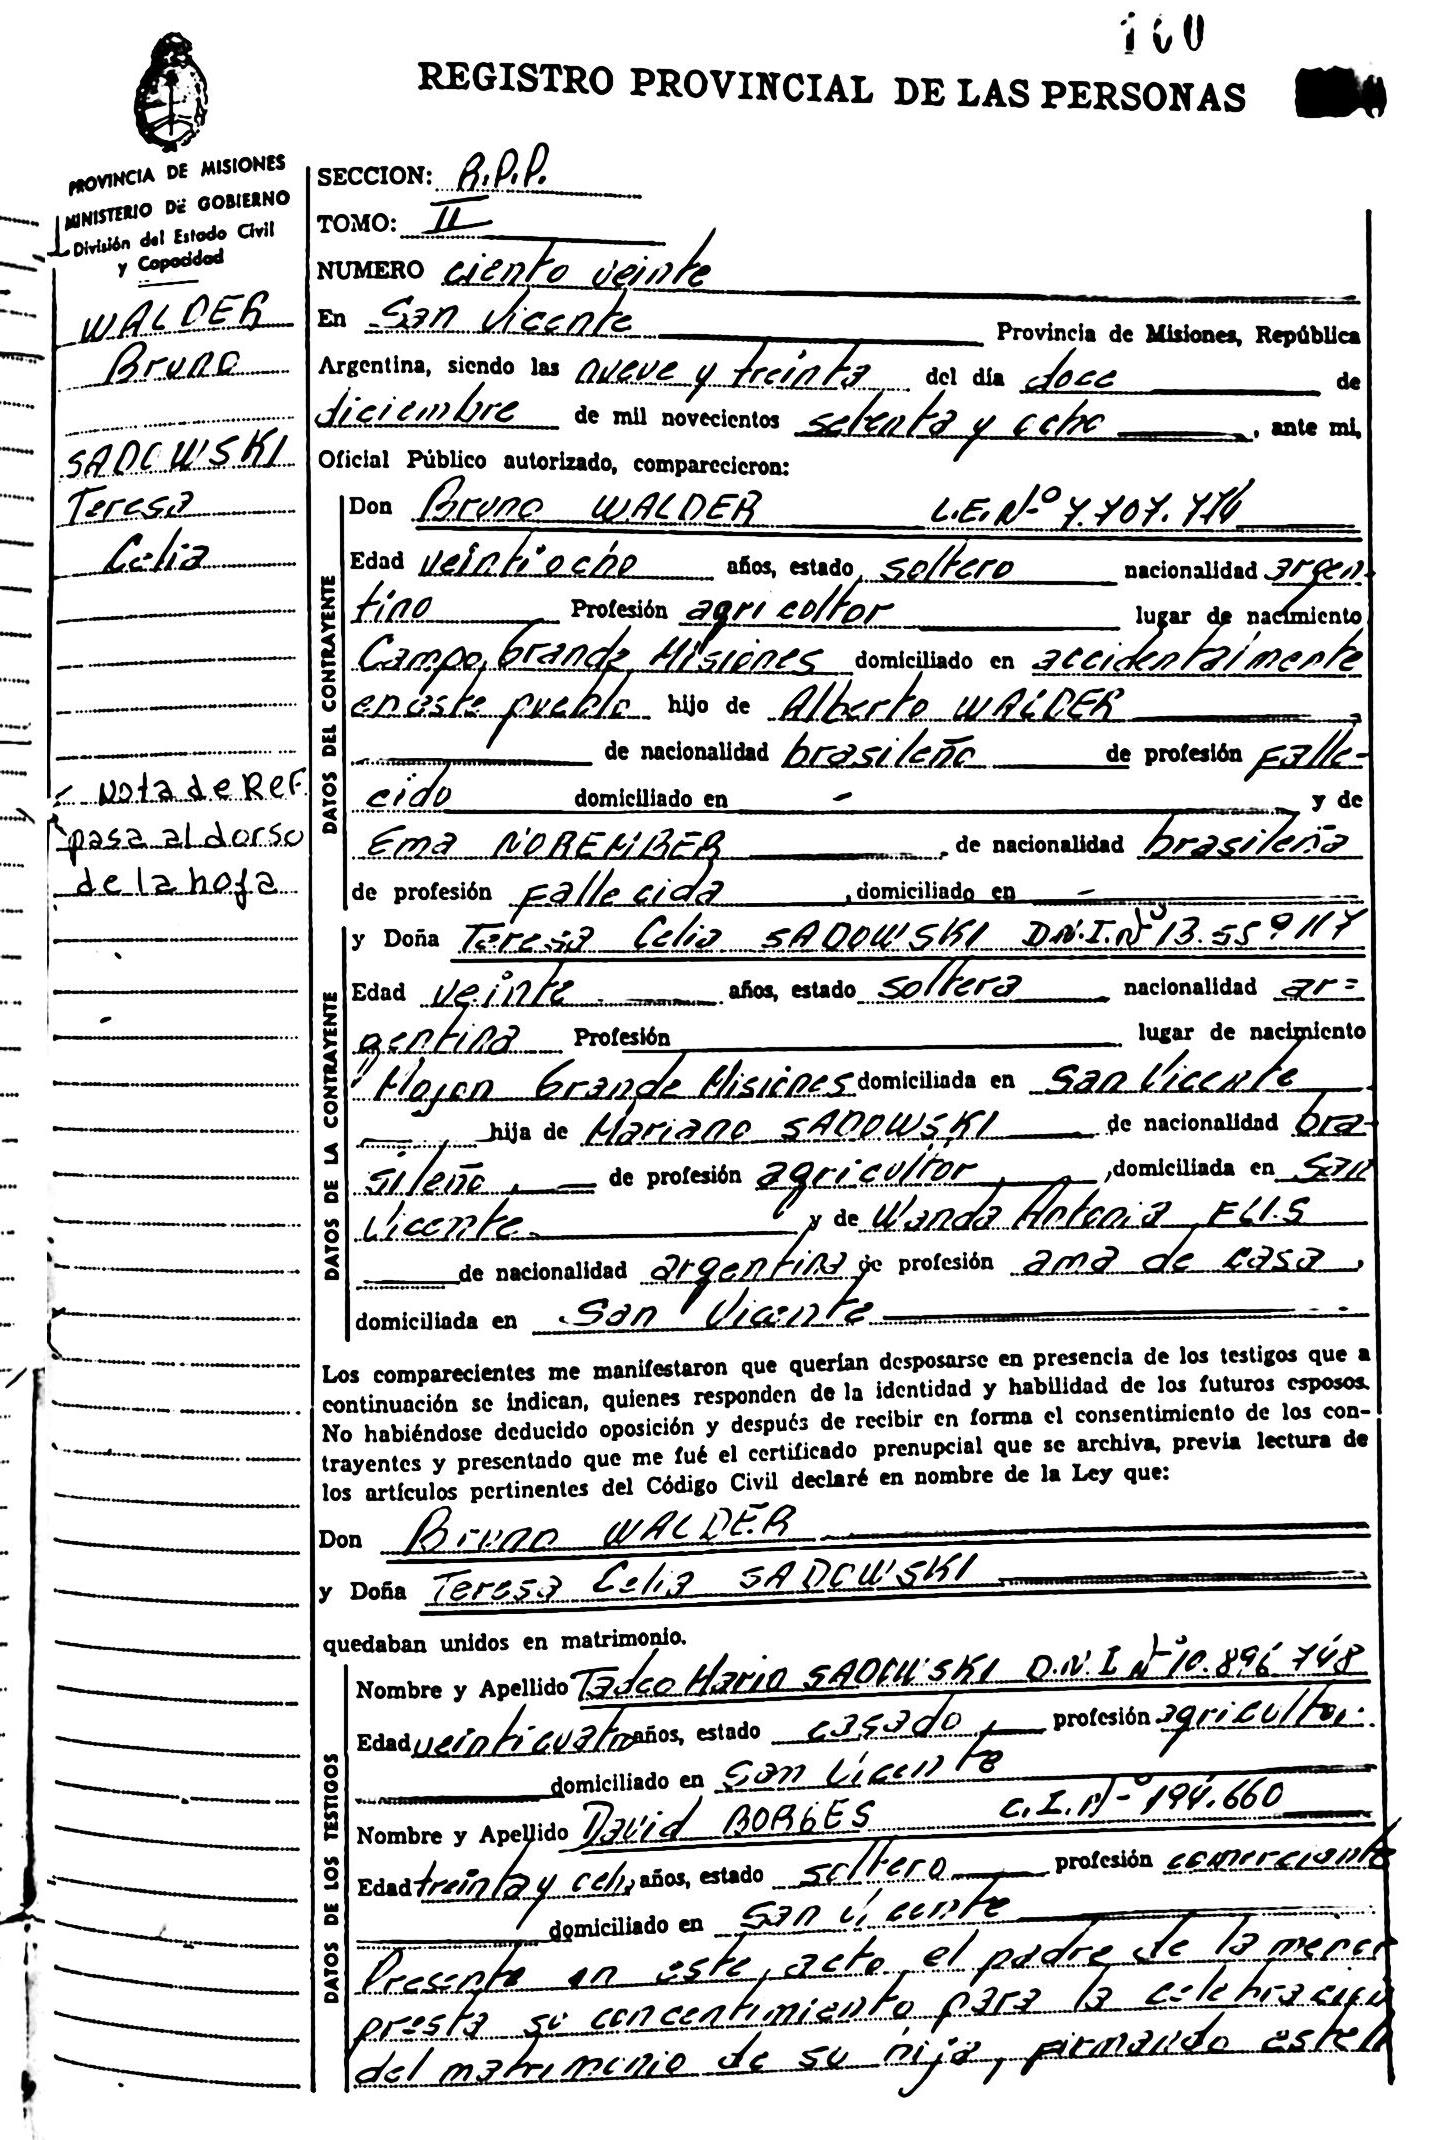 REGISTRO PROVINCIAL DE LAS PERSONAS
PROVINCIA DE MISIONES
MINISTERIO DE GOBIERNO
División del Estado Civil
y Capacidad
WALDER
Bruno
SADOWSKI
Teresa
Celia
Nota de Ref.
pasa al dorso
de la hoja
SECCION: R.P.P.
TOMO: II
NUMERO ciento veinte
En San Vicente Provincia de Misiones, República
Argentina, siendo las nueve y treinta del día doce de
diciembre de mil novecientos setenta y ocho, ante mi,
Oficial Público autorizado, comparecieron:
DATOS DEL CONTRAYENTE
Don Bruno WALDER L.E.Nº 7.707.774
Edad veintiocho años, estado soltero nacionalidad argen-
tino Profesión agricultor lugar de nacimiento
Campo Grande Misiones domiciliado en accidentalmente
en este pueblo hijo de Alberto WALDER
de nacionalidad brasileño de profesión Falle-
cido domiciliado en - y de
Ema NOREMBER, de nacionalidad brasileña
de profesión Fallecida, domiciliado en -
DATOS DE LA CONTRAYENTE
y Doña Teresa Celia SADOWSKI D.N.I.Nº 13.559117
Edad veinte años, estado soltera nacionalidad ar=
gentina Profesión lugar de nacimiento
Mojon Grande Misiones domiciliada en San Vicente
hija de Mariano SADOWSKI de nacionalidad bra-
sileño, de profesión agricultor, domiciliada en San
Vicente. y de Wanda Antonia ELIS
de nacionalidad argentina de profesión ama de casa,
domiciliada en San Vicente
Los comparecientes me manifestaron que querían desposarse en presencia de los testigos que a
continuación se indican, quienes responden de la identidad y habilidad de los futuros esposos.
No habiéndose deducido oposición y después de recibir en forma el consentimiento de los con-
trayentes y presentado que me fué el certificado prenupcial que se archiva, previa lectura de
los artículos pertinentes del Código Civil declaré en nombre de la Ley que:
Don Bruno WALDER
y Doña Teresa Celia SADOWSKI
quedaban unidos en matrimonio.
DATOS DE LOS TESTIGOS
Nombre y Apellido Tadeo Mario SADOWSKI D.N.I Nº 10.896 748
Edad veinticuatro años, estado casado, profesión agricultor.
domiciliado en San Vicente
Nombre y Apellido David BORGES C.I.Nº 194.660
Edad treinta y ocho años, estado soltero profesión comerciante
domiciliado en San Vicente
Presente en este acto el padre de la menor
presta su concentimiento para la celebración
del matrimonio de su hija, firmando